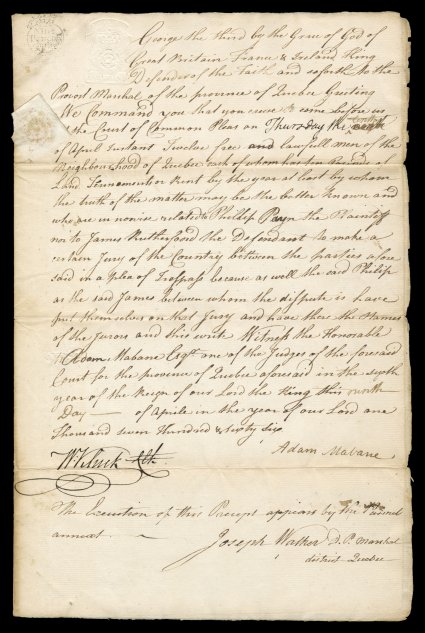 George the third by the Grace of God of
Great Britain France & Ireland King
Defender of the Faith and soforth to the
Provost Marshal of the province of Quebec Greeting
We Command you that you cause to come before us
at the Court of Common Pleas on Thursday the
of April Instant Twelve free and lawfull men of the
Neighbourhood of Quebec each of whom has ten Pounds of
Land Tennements or Rent by the year at least by whom
the truth of the matter may be the better known and
who are in nowise related to Philip Payn the Plaintiff
nor to James Rutherford the Defendant to make a
certain Jury of the Country between the parties afore
said in a Plea of Trespass because as well the said Philip
as the said James between whom the dispute is have
put themselves on that Jury and have there the Names
of the Jurors and this writ Witness the Honorable
Adam Mabane Esqr. one of the Judges of the foresaid
Court for the province of Quebec aforesaid in the sixth
year of the Reign of our Lord the King this ninth
Day — of Aprile in the year of our Lord one
Thousand seven Hundred & sixty six
Adam Mabane
Clk
The Execution of this Precept appears by the Pannel
annext —
Joseph Walker D. P. Marshal
district Quebec